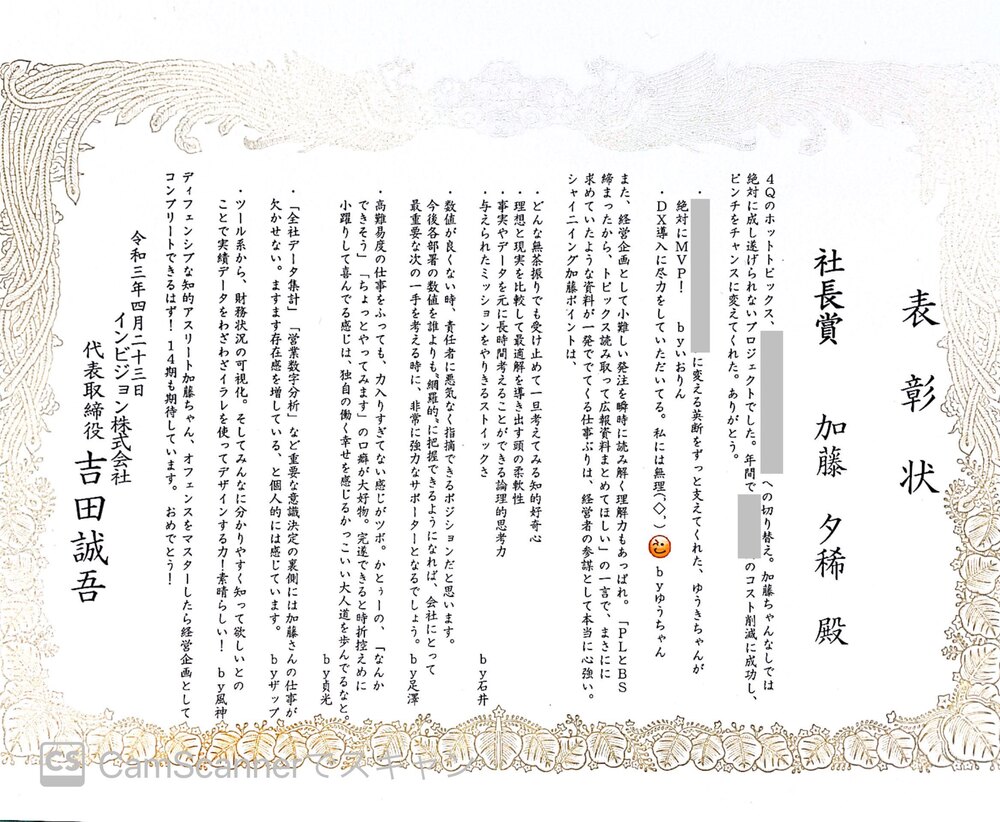 表彰状
社長賞 加藤 夕稀 殿
4Qのホットトピックス、 への切り替え。加藤ちゃんなしでは
絶対に成し遂げられないプロジェクトでした。年間で のコスト削減に成功し、
ピンチをチャンスに変えてくれた。ありがとう。
・ に変える英断をずっと支えてくれた、ゆうきちゃんが
絶対にMVP! byいおりん
・DX導入に尽力をしていただいてる。私には無理(◇、) byゆうちゃん
また、経営企画として小難しい発注を瞬時に読み解く理解力もあっぱれ。「PLとBS
締まったから、トピックス読み取って広報資料まとめてほしい」の一言で、まさにに
求めていたような資料が一発ででてくる仕事ぶりは、経営者の参謀として本当に心強い。
シャイニイング加藤ポイントは、
・どんな無茶振りでも受け止めて一旦考えてみる知的好奇心
・理想と現実を比較して最適解を導き出す頭の柔軟性
・事実やデータを元に長時間考えることができる論理的思考力
・与えられたミッションをやりきるストイックさ
by石井
・数値が良くない時、責任者に悪気なく指摘できるポジションだと思います。
今後各部署の数値を誰よりも“網羅的”に把握できるようになれば、会社にとって
最重要な次の一手を考える時に、非常に強力なサポーターとなるでしょう。 by足澤
・高難易度の仕事をふっても、力入りすぎてない感じがツボ。かとぅーの、「なんか
できそう」「ちょっとやってみます」の口癖が大好物。完遂できると時折控えめに
小躍りして喜んでる感じは、独自の働く幸せを感じるかっこいい大人道を歩んでるなと。
by貞光
・「全社データ集計」「営業数字分析」など重要な意識決定の裏側には加藤さんの仕事が
欠かせない。ますます存在感を増している、と個人的には感じています。 byザップ
・ツール系から、財務状況の可視化。そしてみんなに分かりやすく知って欲しいとの
ことで実績データをわざわざイラレを使ってデザインする力!素晴らしい! by風神
ディフェンシブな知的アスリート加藤ちゃん、オフェンスをマスターしたら経営企画として
コンプリートできるはず!14期も期待しています。おめでとう!
令和三年四月二十三日
インビジョン株式会社
代表取締役 吉田誠吾
CS CamScannerでスキャン